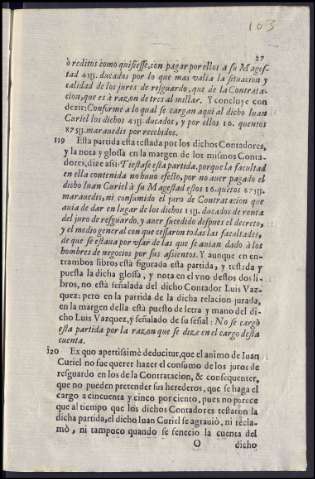 103
27
ò reditos como quisiesse, con pagar por ellos a su Mages-
tad 4 ducados por lo que mas valia la situacion y
calidad de los juros de resguardo, que de la Contrata-
cion, que es à razon de tres al millar. Y concluye con
dezir: Conforme a lo qual se cargan aqui al dicho Iuan
Curiel los dichos ducados, y por ellos 16. quentos
875 marauedis por recebidos.
119 Esta partida esta testada por los dichos Contadores,
y la nota y glossa en la margen de los mismos Conta-
dores, dize assi: Testase esta partida, porque la facultad
en ella contenida no huuo efeto, por no auer pagado el
dicho Iuan Curiel à su Magestad estos 16. quitos 875
marauedis, ni consumido el juro de Contratacion que
auia de dar en lugar de los dichos ducados de renta
del juro de resguardo, y auer sucedido despues el decreto,
y el medio general con que cessaron todas las facultades,
de que se estaua por vsar de las que se auian dado à los
hombres de negocios por sus assientos. Y aunque en en-
trambos libros està figurada esta partida, y testada y
puesta la dicha glossa, y nota en el vno destos dos li-
bros, no està señalada del dicho Contador Luis Vaz-
quez: pero en la partida de la dicha relacion jurada,
en la margen della està puesto de letra y mano del di-
cho Luis Vazquez, y señalado de su señal: No se cargò
esta partida por la razon que se dize en el cargo desta
cuenta.
120 Ex quo apertissimè deducitur, que el animo de Iuan
Curiel no fue querer hazer el consumo de los juros de
resguardo en los de la Contratacion, & consequenter,
que no pueden pretender sus herederos, que se haga el
cargo a cincuenta y cinco por ciento, pues no parece
que al tiempo que los dichos Contadores testaron la
dicha partida, el dicho Iuan Curiel se agrauiò, ni recla-
mò, ni tampoco quando se feneciò la cuenta del
O dicho